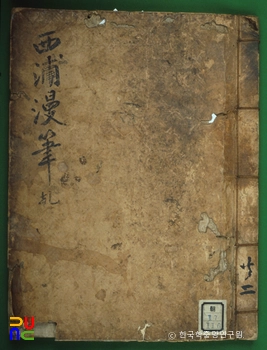 西浦漫筆
共二
© 한국학중앙연구원